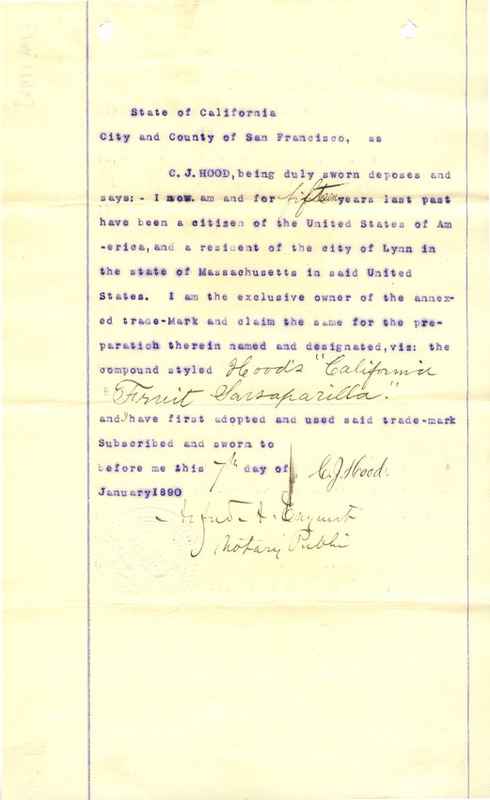 State of California
City and County of San Francisco, ss
C.J.HOOD, being duly sworn deposes and
says:- I now am and for fifteen years last past
have been a citizen of the United States of Am
-erica, and a resident of the city of Lynn in
the state of Massachusetts in said United
States. I am the exclusive owner of the annex-
ed trade-Mark and claim the same for the pre-
paration therein named and designated, viz: the
compound styled Hood's "California
Fruit Sarsaparilla."
and I have first adopted and used said trade-mark
Subscribed and sworn to
before me this 7th day of C.J. Hood.
January 1890
Enquist
Notary Public